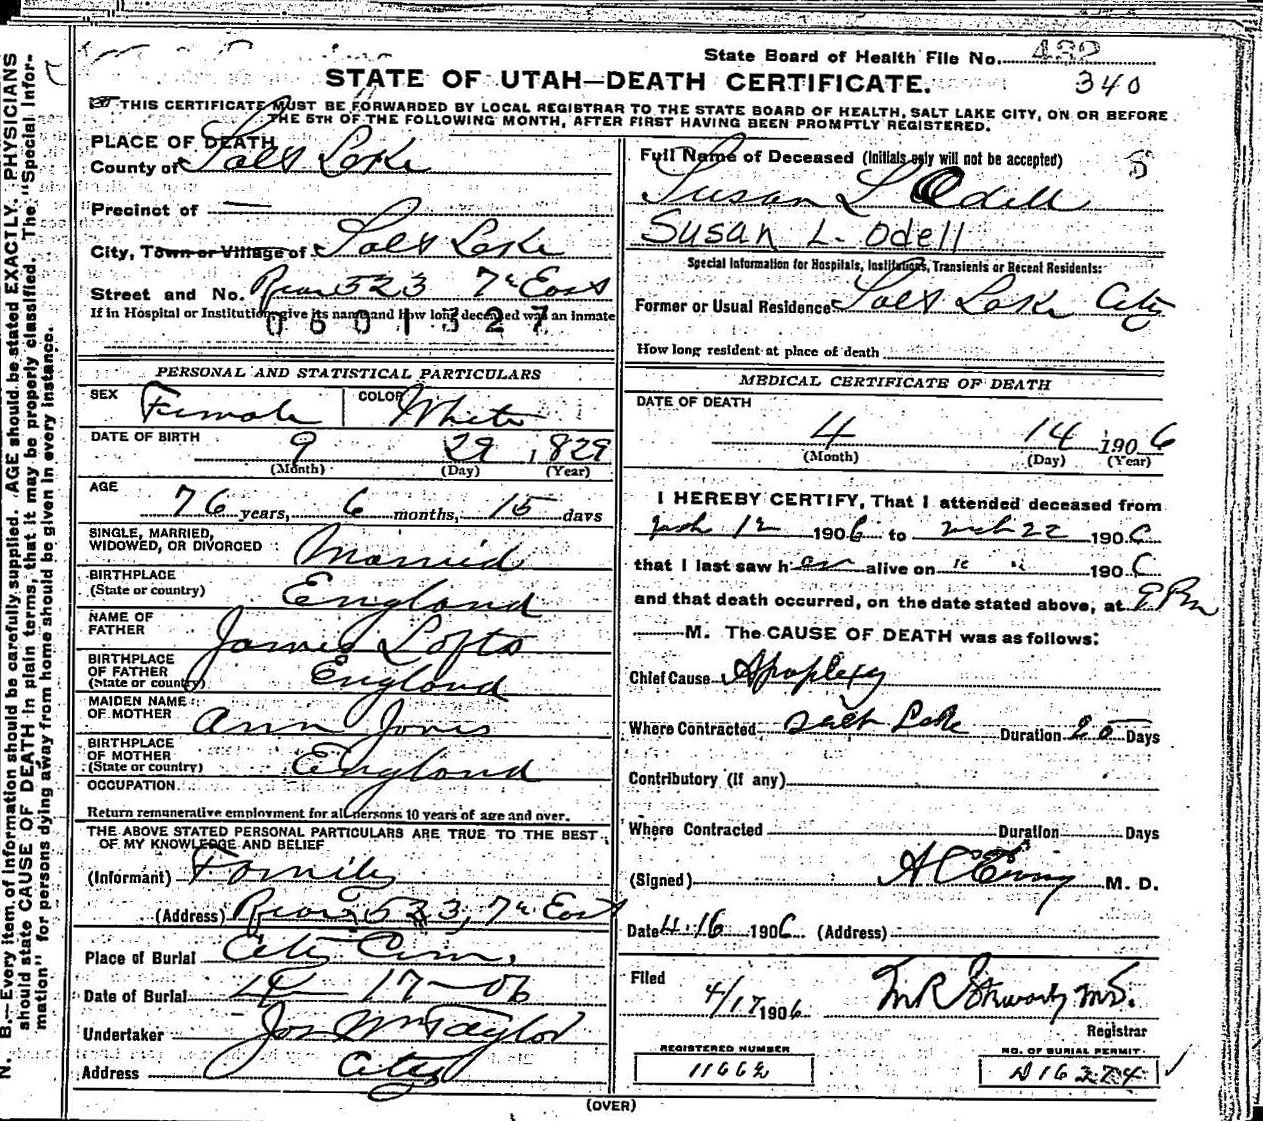 State Board of Health File No. 432
STATE OF UTAH—DEATH CERTIFICATE.
340
THIS CERTIFICATE MUST BE FORWARDED BY LOCAL REGISTRAR TO THE STATE BOARD OF HEALTH, SALT LAKE CITY, ON OR BEFORE
THE 5TH OF THE FOLLOWING MONTH, AFTER FIRST HAVING BEEN PROMPTLY REGISTERED.
N. B.—Every item of information should be carefully supplied. AGE should be stated EXACTLY. PHYSICIANS
should state CAUSE OF DEATH in plain terms, that it may be properly classified. The "Special Infor-
mation" for persons dying away from home should be given in every instance.
PLACE OF DEATH
County of Salt Lake
Precinct of —
City, Town or Village of Salt Lake
Street and No. Rear 523 7th East
If in Hospital or Institution, give its name and how long deceased was an inmate
0601327
PERSONAL AND STATISTICAL PARTICULARS
SEX Female COLOR White
DATE OF BIRTH 9 29 , 1829
(Month) (Day) (Year)
AGE 76 years, 6 months, 15 days
SINGLE, MARRIED,
WIDOWED, OR DIVORCED Married
BIRTHPLACE
(State or country) England
NAME OF
FATHER James Lofts
BIRTHPLACE
OF FATHER
(State or country) England
MAIDEN NAME
OF MOTHER Ann Jones
BIRTHPLACE
OF MOTHER
(State or country) England
OCCUPATION
Return remunerative employment for all persons 10 years of age and over.
THE ABOVE STATED PERSONAL PARTICULARS ARE TRUE TO THE BEST
OF MY KNOWLEDGE AND BELIEF
(Informant) Family
(Address) Rear 523, 7th East
Place of Burial City Cem.
Date of Burial 4 17—06
Undertaker Jos Wm Taylor
Address City
Full Name of Deceased (Initials only will not be accepted)
Susan L Odell
Susan L. Odell
Special Information for Hospitals, Institutions, Transients or Recent Residents:
Former or Usual Residence Salt Lake City
How long resident at place of death
MEDICAL CERTIFICATE OF DEATH
DATE OF DEATH
4 14 1906
(Month) (Day) (Year)
I HEREBY CERTIFY, That I attended deceased from
12 1906 to Mch 22 1906
that I last saw her alive on " " 1906
and that death occurred, on the date stated above, at
M. The CAUSE OF DEATH was as follows:
Chief Cause Apoplexy
Where Contracted Salt Lake Duration Days
Contributory (if any)
Where Contracted Duration Days
(Signed) M. D.
Date 4.16 1906 (Address)
Filed
4/17 1906
Registrar
REGISTERED NUMBER
11662
NO. OF BURIAL PERMIT
16274
(OVER)